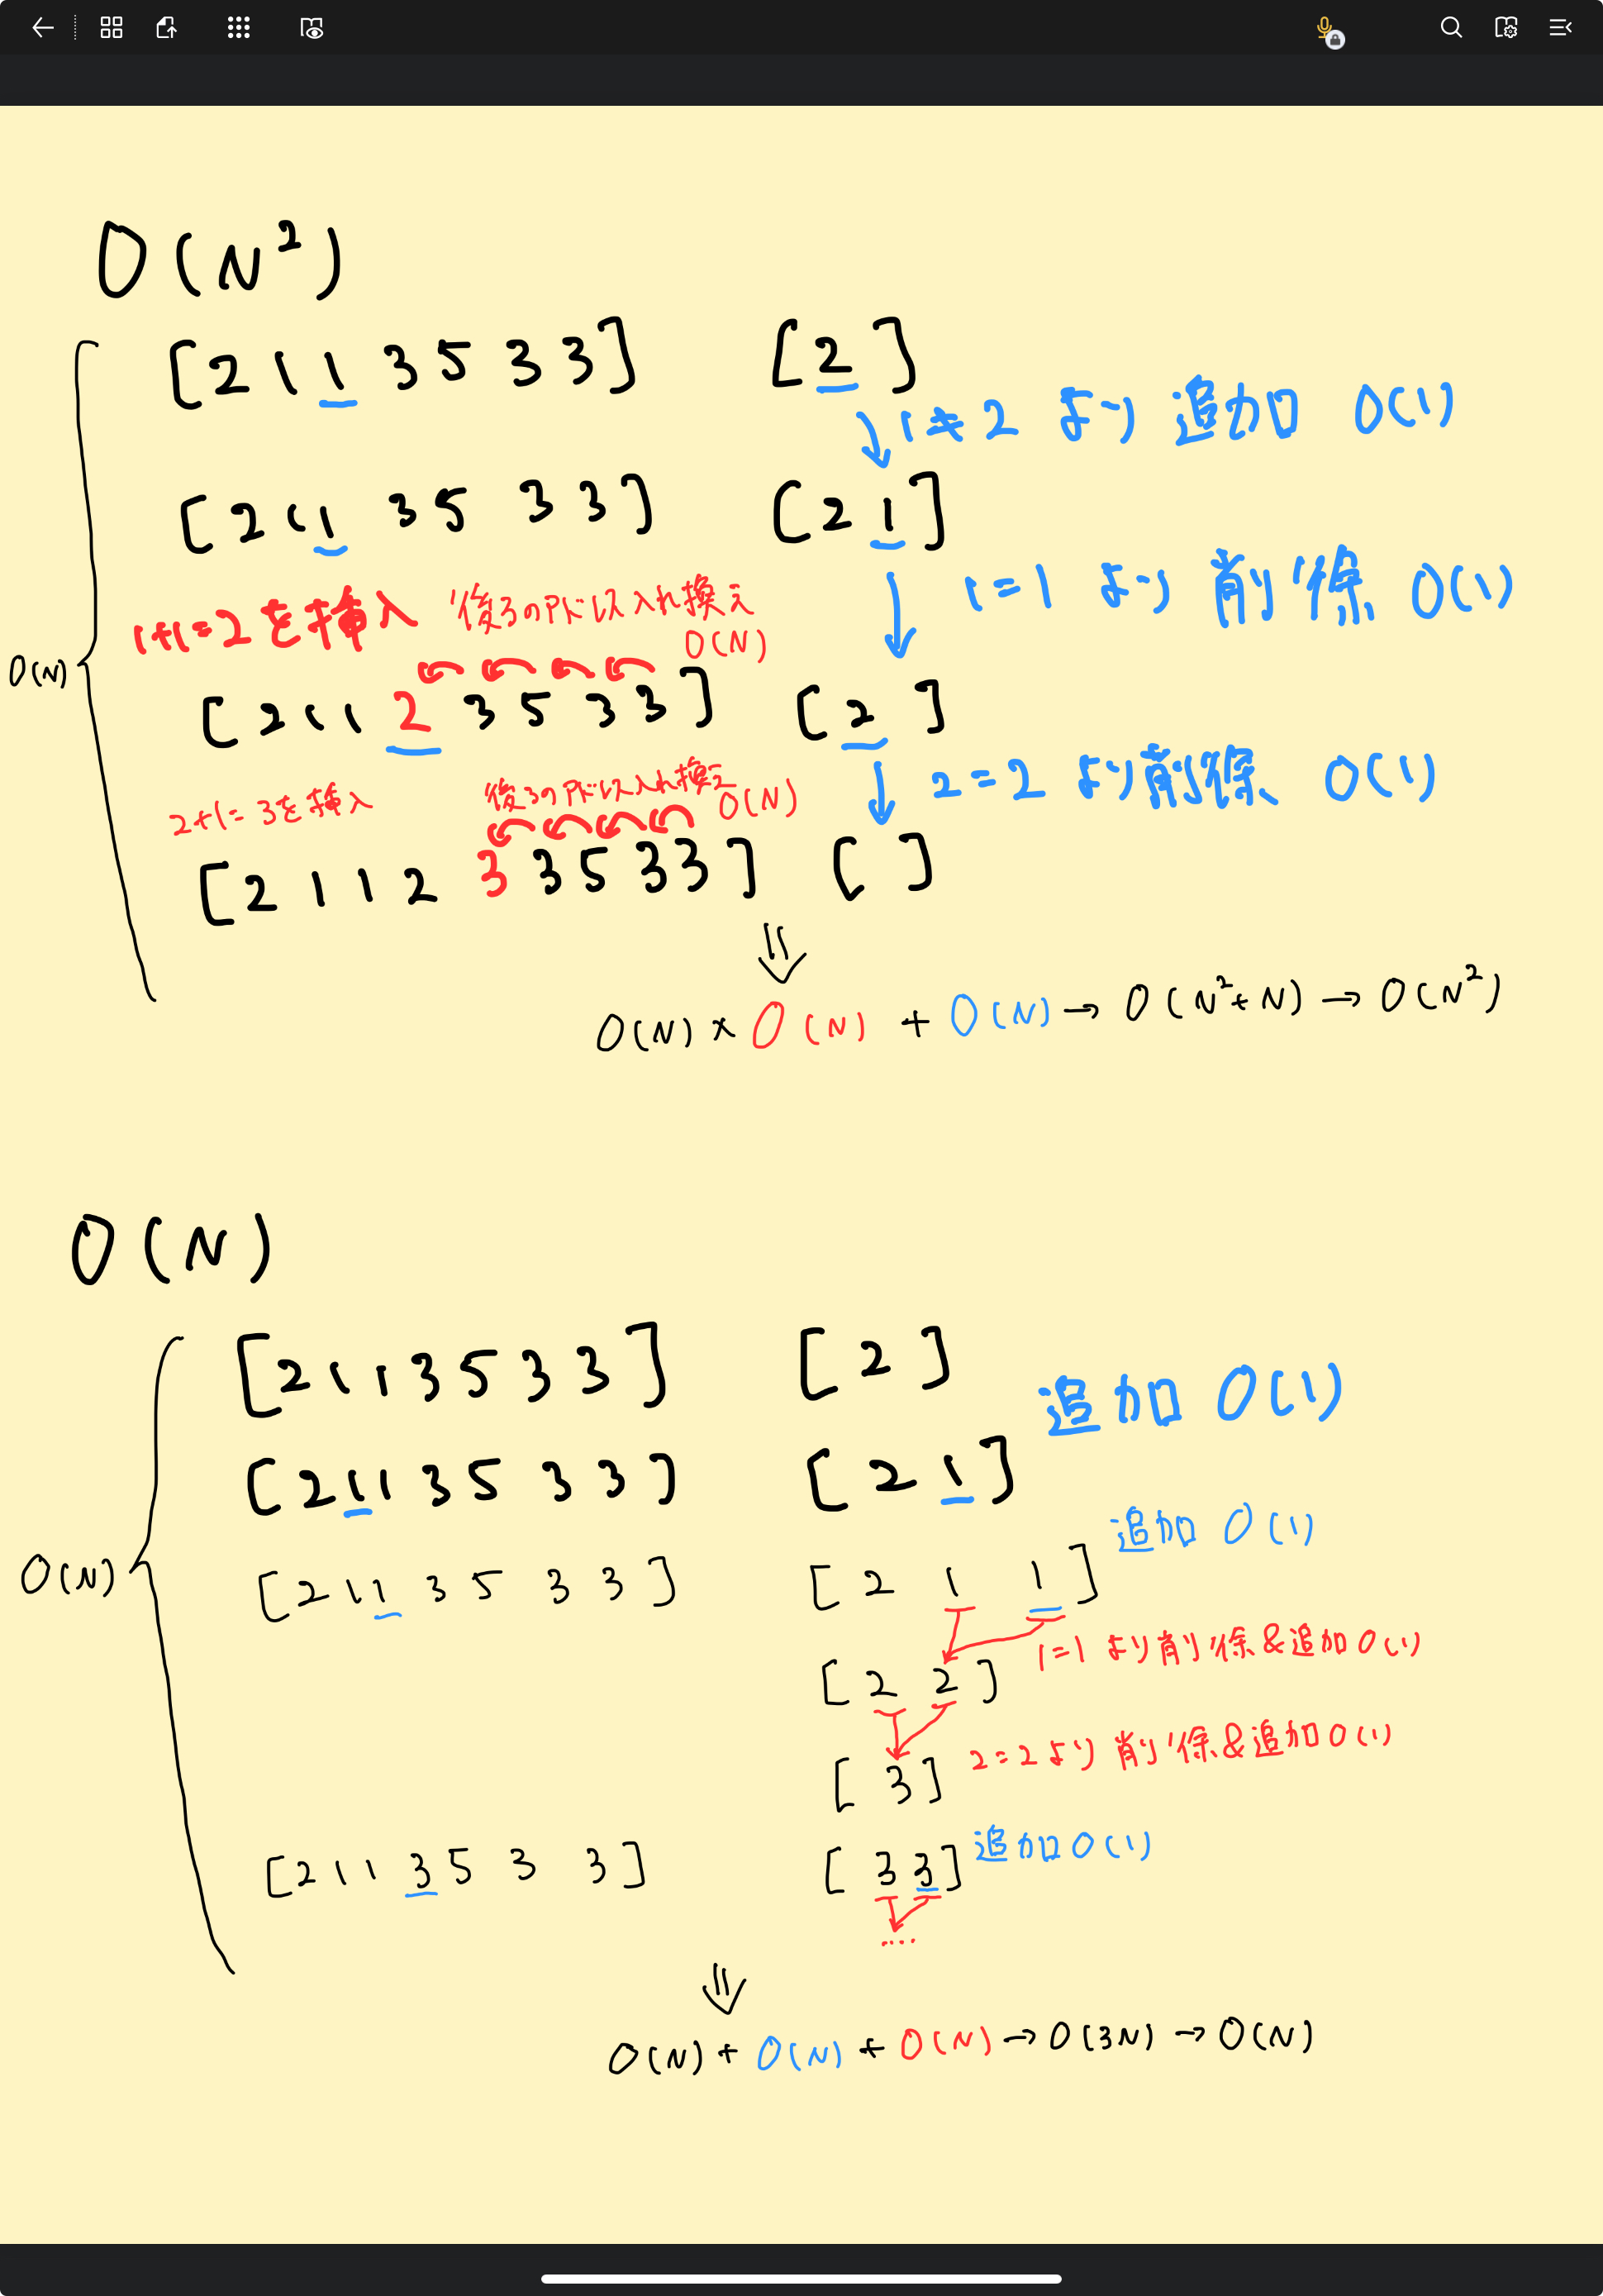 O(N²)
[2 1 1 3 5 3 3] [2]
1≠2 より 追加 O(1)
[2 1 1 3 5 3 3] [2 1]
1=1 より 削除 O(1)
1+1=2を挿入 後ろのPに以入れ換え O(N)
O(N)
[2 1 1 2 3 5 3 3] [2]
2=2 より削除 O(1)
2+1=3を挿入 O(N)
[2 1 1 2 3 3 5 3 3] [ ]
O(N)×O(N)+O(N)→O(N²+N)→O(N²)
O(N)
[2 1 1 3 5 3 3] [2]
追加 O(1)
[2 1 1 3 5 3 3] [2 1]
追加 O(1)
O(N) [2 1 1 3 5 3 3] [2 1 1]
1=1 より削除&追加O(1)
[2 2]
2=2より削除&追加O(1)
[3]
[2 1 1 3 5 3 3] [3 3] 追加O(1)
....
O(N)+O(N)+O(N)→O(3N)→O(N)